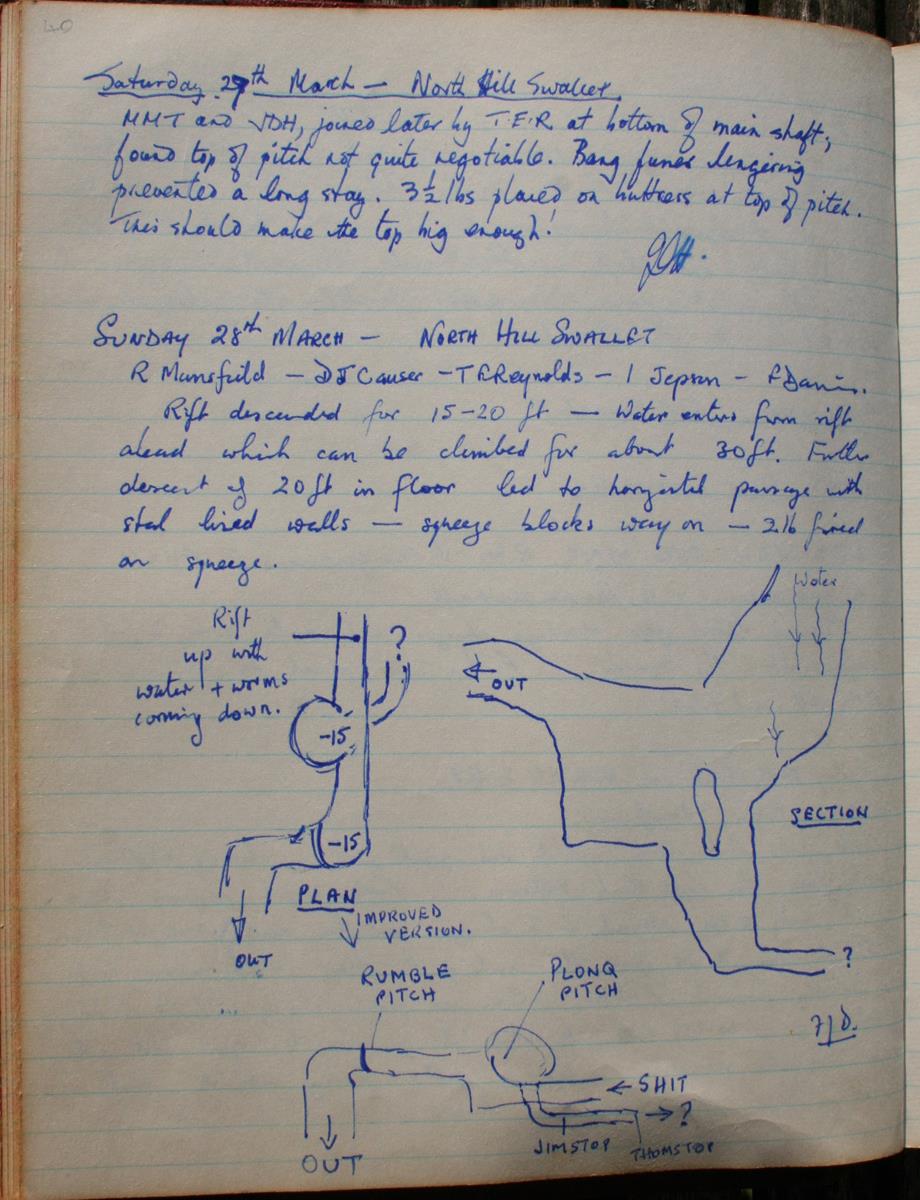 40
Saturday 27th March — North Hill Swallet.
MMT and JDH, joined later by T.E.R at bottom of main shaft;
found top of pitch not quite negotiable. Bang fumes lingering
prevented a long stay. 3½ lbs placed on buttress at top of pitch.
This should make the top big enough!
SUNDAY 28th MARCH — NORTH HILL SWALLET
R Mansfield — DJ Causer — T E Reynolds — I Jepson — F Davies.
Rift descended for 15-20 ft — Water enters from rift
ahead which can be climbed for about 30ft. Further
descent of 20ft in floor led to horizontal passage with
stal lined walls — squeeze blocks way on — 2lb fired
on squeeze.
Rift
up with
water + worms
coming down.
?
-15
-15
OUT
PLAN
Water
OUT
SECTION
?
IMPROVED
VERSION.
RUMBLE
PITCH
PLONQ
PITCH
FJD.
← SHIT
→ ?
JIMSTOP
THOMSTOP
OUT